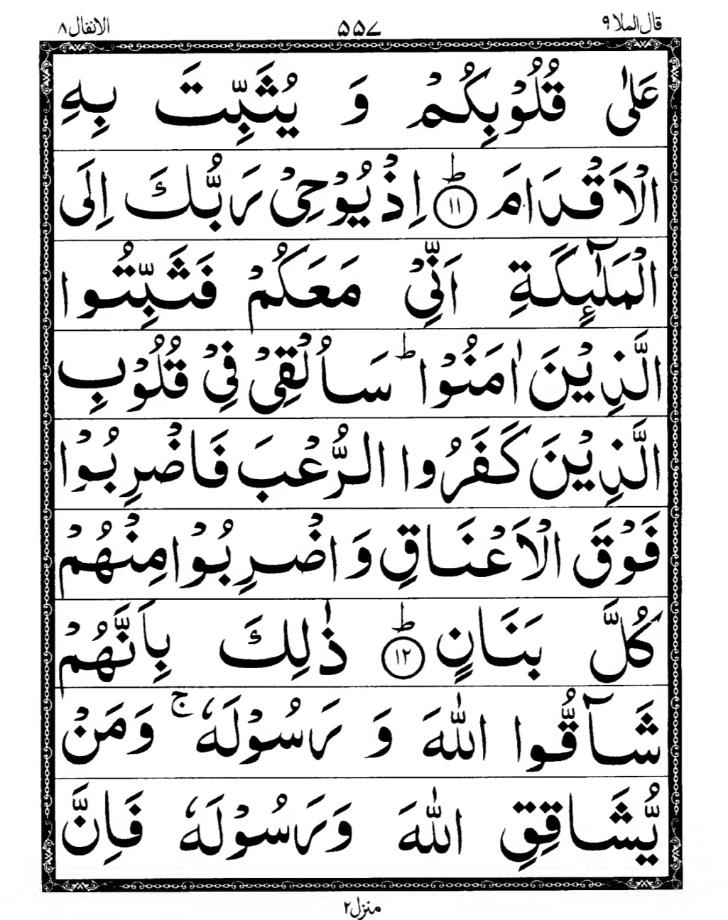 قال الملا ٩ ۵۵۷ الانفال ٨
عَلٰى قُلُوْبِكُمْ وَ يُثَبِّتَ بِهِ
الْاَقْدَامَ ؕ‏﴿۱۱﴾ اِذْ يُوْحِىْ رَبُّكَ اِلَى
الْمَلٰٓٮِٕكَةِ اَنِّىْ مَعَكُمْ فَثَبِّتُوا
الَّذِيْنَ اٰمَنُوْا ؕ سَاُلْقِىْ فِىْ قُلُوْبِ
الَّذِيْنَ كَفَرُوا الرُّعْبَ فَاضْرِبُوْا
فَوْقَ الْاَعْنَاقِ وَ اضْرِبُوْا مِنْهُمْ
كُلَّ بَنَانٍ ؕ‏﴿۱۲﴾ ذٰلِكَ بِاَنَّهُمْ
شَآقُّوا اللّٰهَ وَ رَسُوْلَهٗ ۚ وَمَنْ
يُّشَاقِقِ اللّٰهَ وَرَسُوْلَهٗ فَاِنَّ
منزل ۲